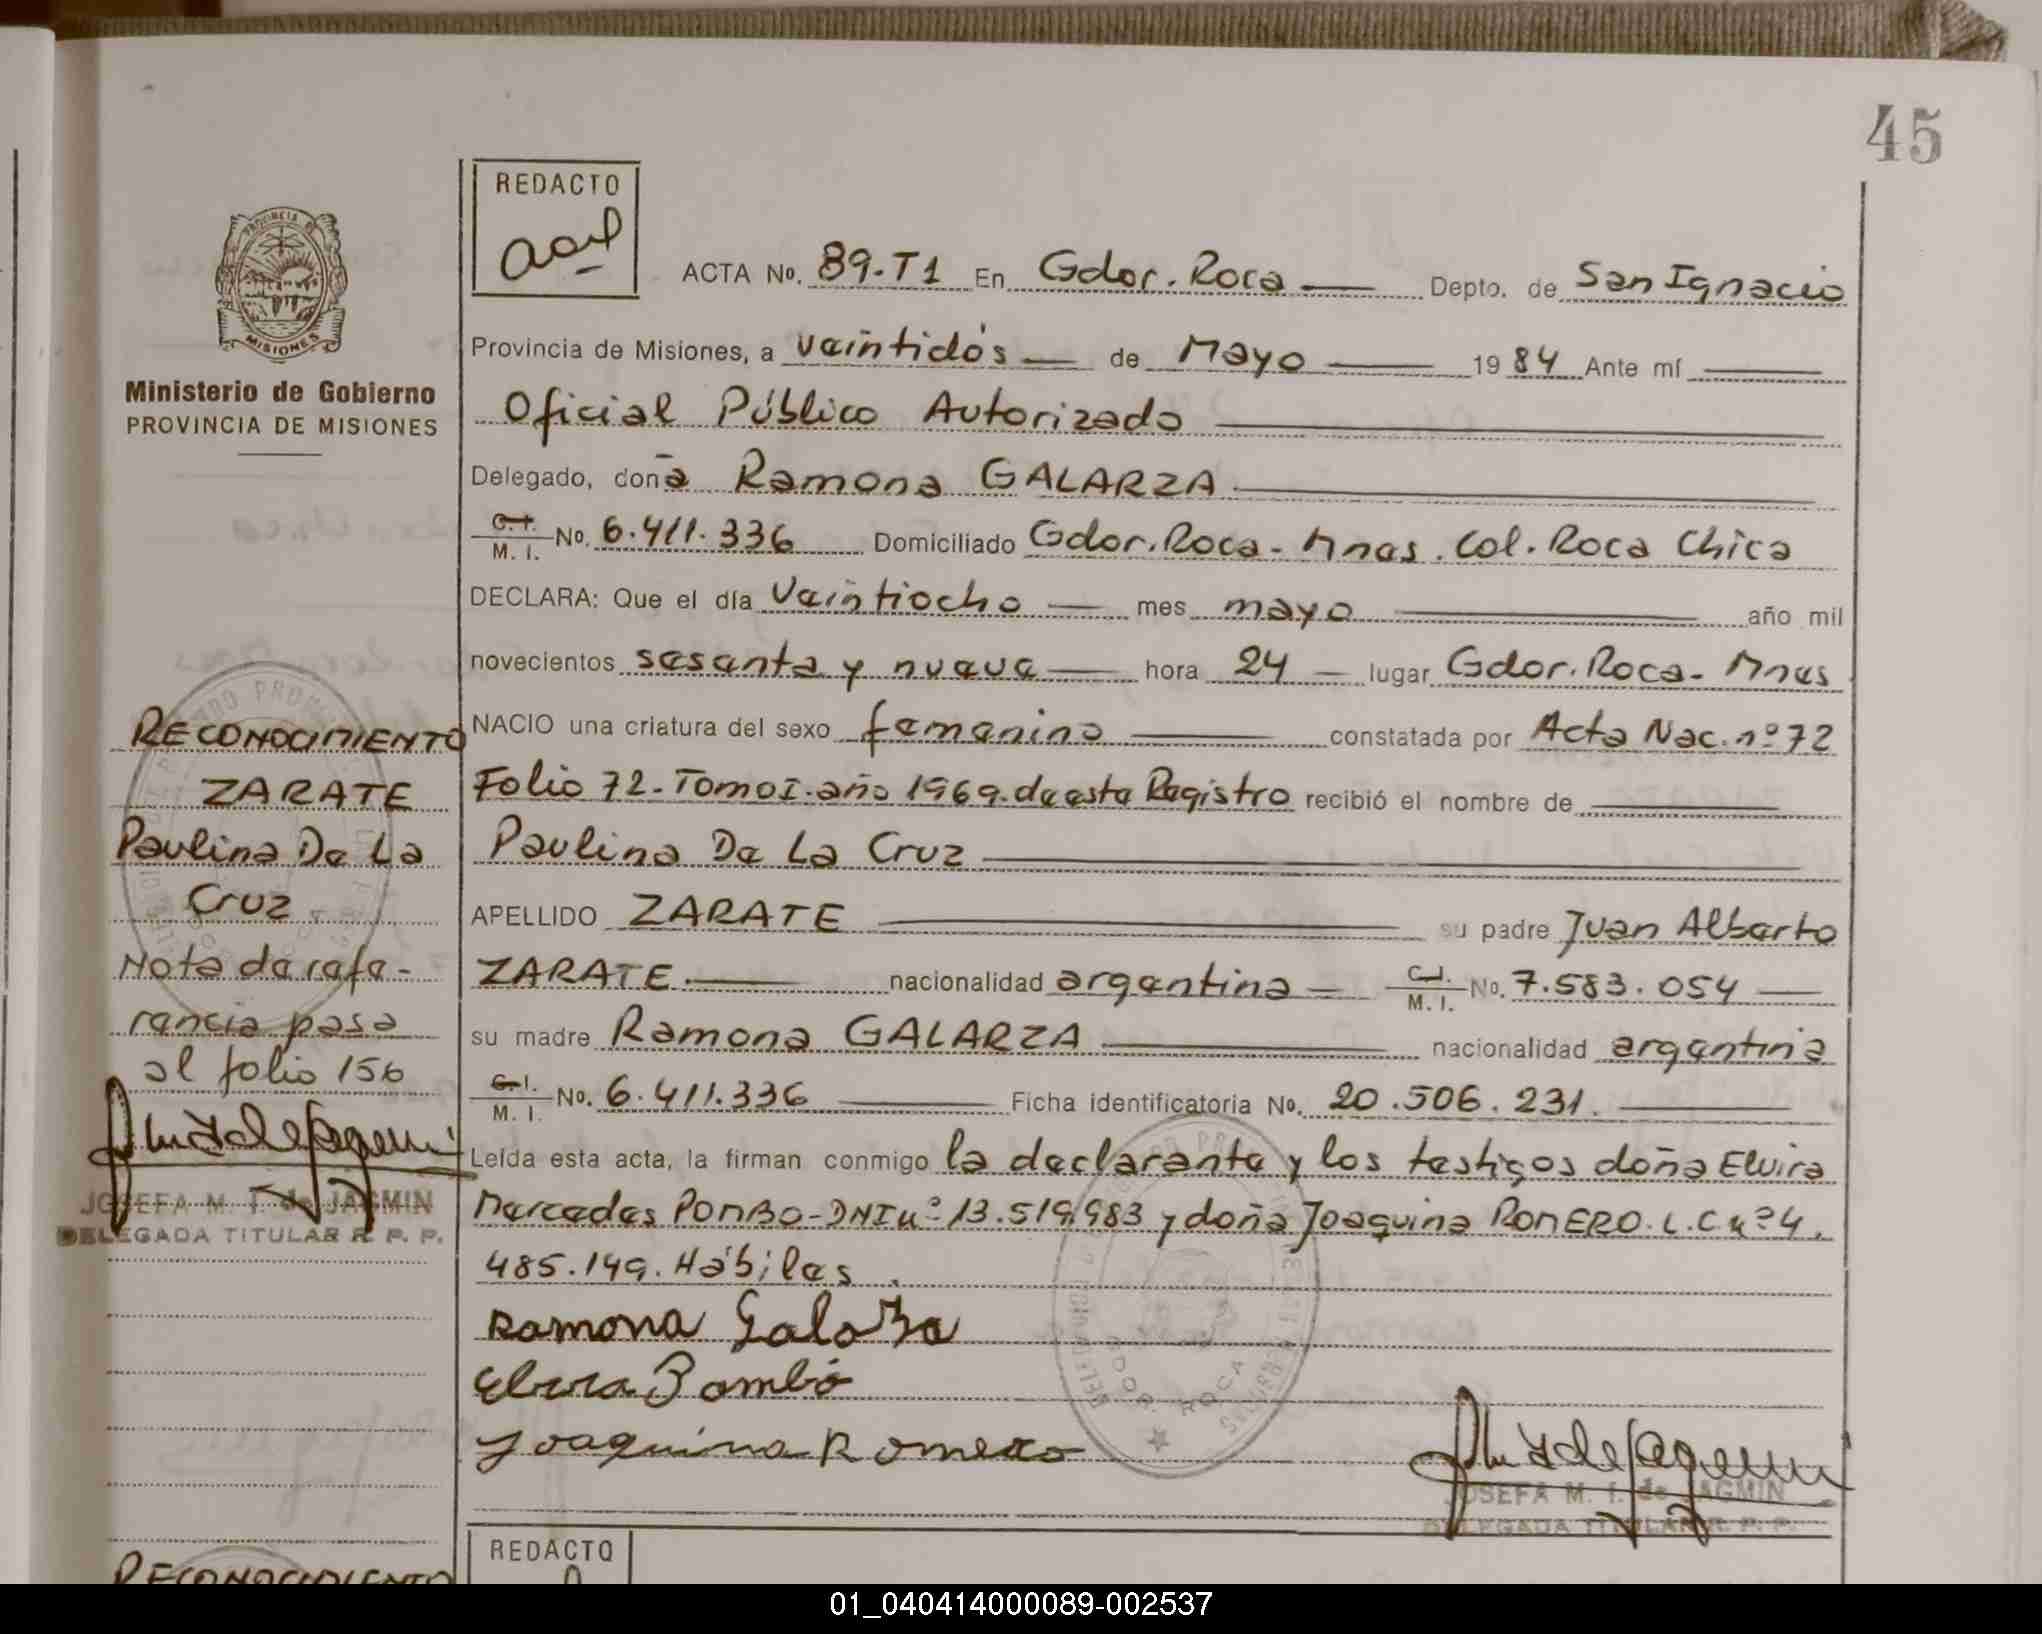 45
REDACTO
ACTA No. 89-T1 En Gdor. Roca Depto. de San Ignacio
Provincia de Misiones, a veintidós de Mayo 1984 Ante mí
Oficial Público Autorizado
Delegado, doña Ramona GALARZA
C. I. M. I. No. 6.411.336 Domiciliado Gdor. Roca - Mnes. Col. Roca Chica
DECLARA: Que el día Veintiocho mes mayo año mil
novecientos sesenta y nueve hora 24 lugar Gdor. Roca - Mnes
NACIO una criatura del sexo femenino constatada por Acta Nac. nº 72
Folio 72 - Tomo I. año 1969. de este Registro recibió el nombre de
Paulina De La Cruz
APELLIDO ZARATE su padre Juan Alberto
ZARATE nacionalidad argentina C. I. M. I. No. 7.583.054
su madre Ramona GALARZA nacionalidad argentina
C. I. M. I. No. 6.411.336 Ficha identificatoria No. 20.506.231.
Leída esta acta, la firman conmigo la declarante y los testigos doña Elvira
Mercedes POMBO - DNI nº 13.519.983 y doña Joaquina ROMERO. L.C nº 4.
485.149. Hábiles.
Ramona Galarza
Elvira Pombó
Joaquina Romero
JOSEFA M. I. de JAGMIN
DELEGADA TITULAR R. P. P.
PROVINCIA DE
MISIONES
Ministerio de Gobierno
PROVINCIA DE MISIONES
RECONOCIMIENTO
ZARATE
Paulina De La
Cruz
Nota de refe-
rencia pasa
al folio 156
JOSEFA M. I. de JAGMIN
DELEGADA TITULAR R. P. P.
REDACTO
RECONOCIMIENTO
01_040414000089-002537